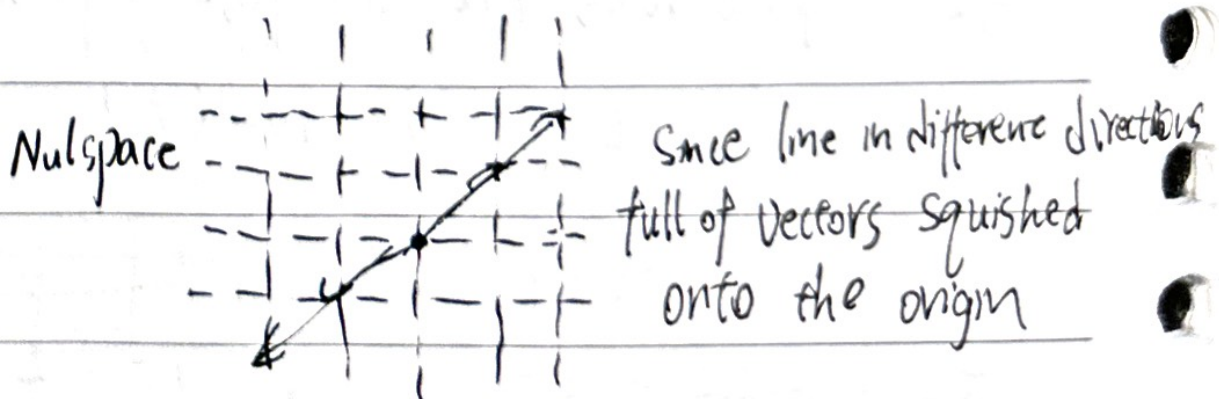 Nulspace
Since line in different directions
full of vectors squished
onto the origin